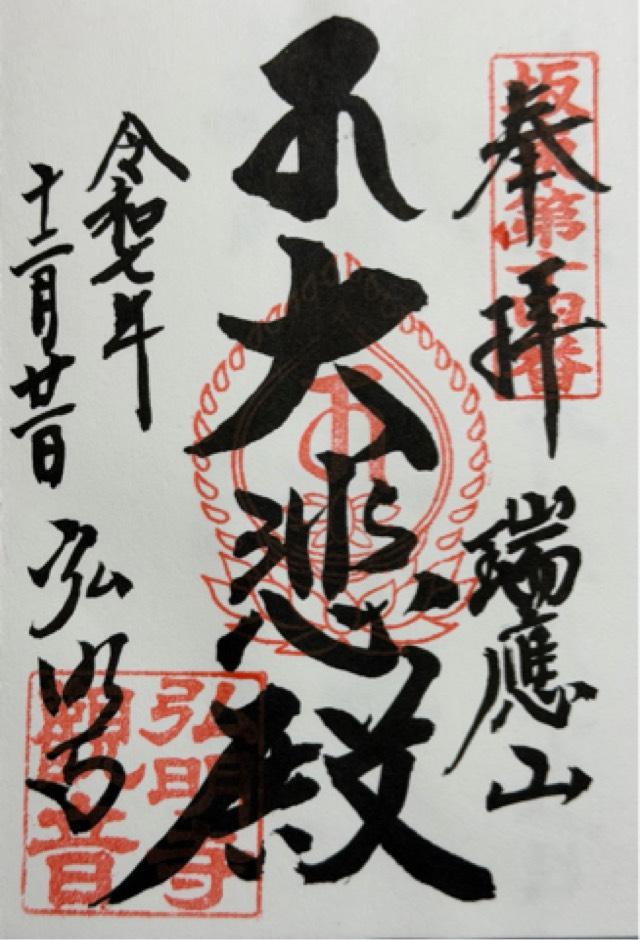 奉拝
坂東第十四番
瑞應山
大悲殿
令和七年
十二月廿一日
弘明寺
弘明寺
観音